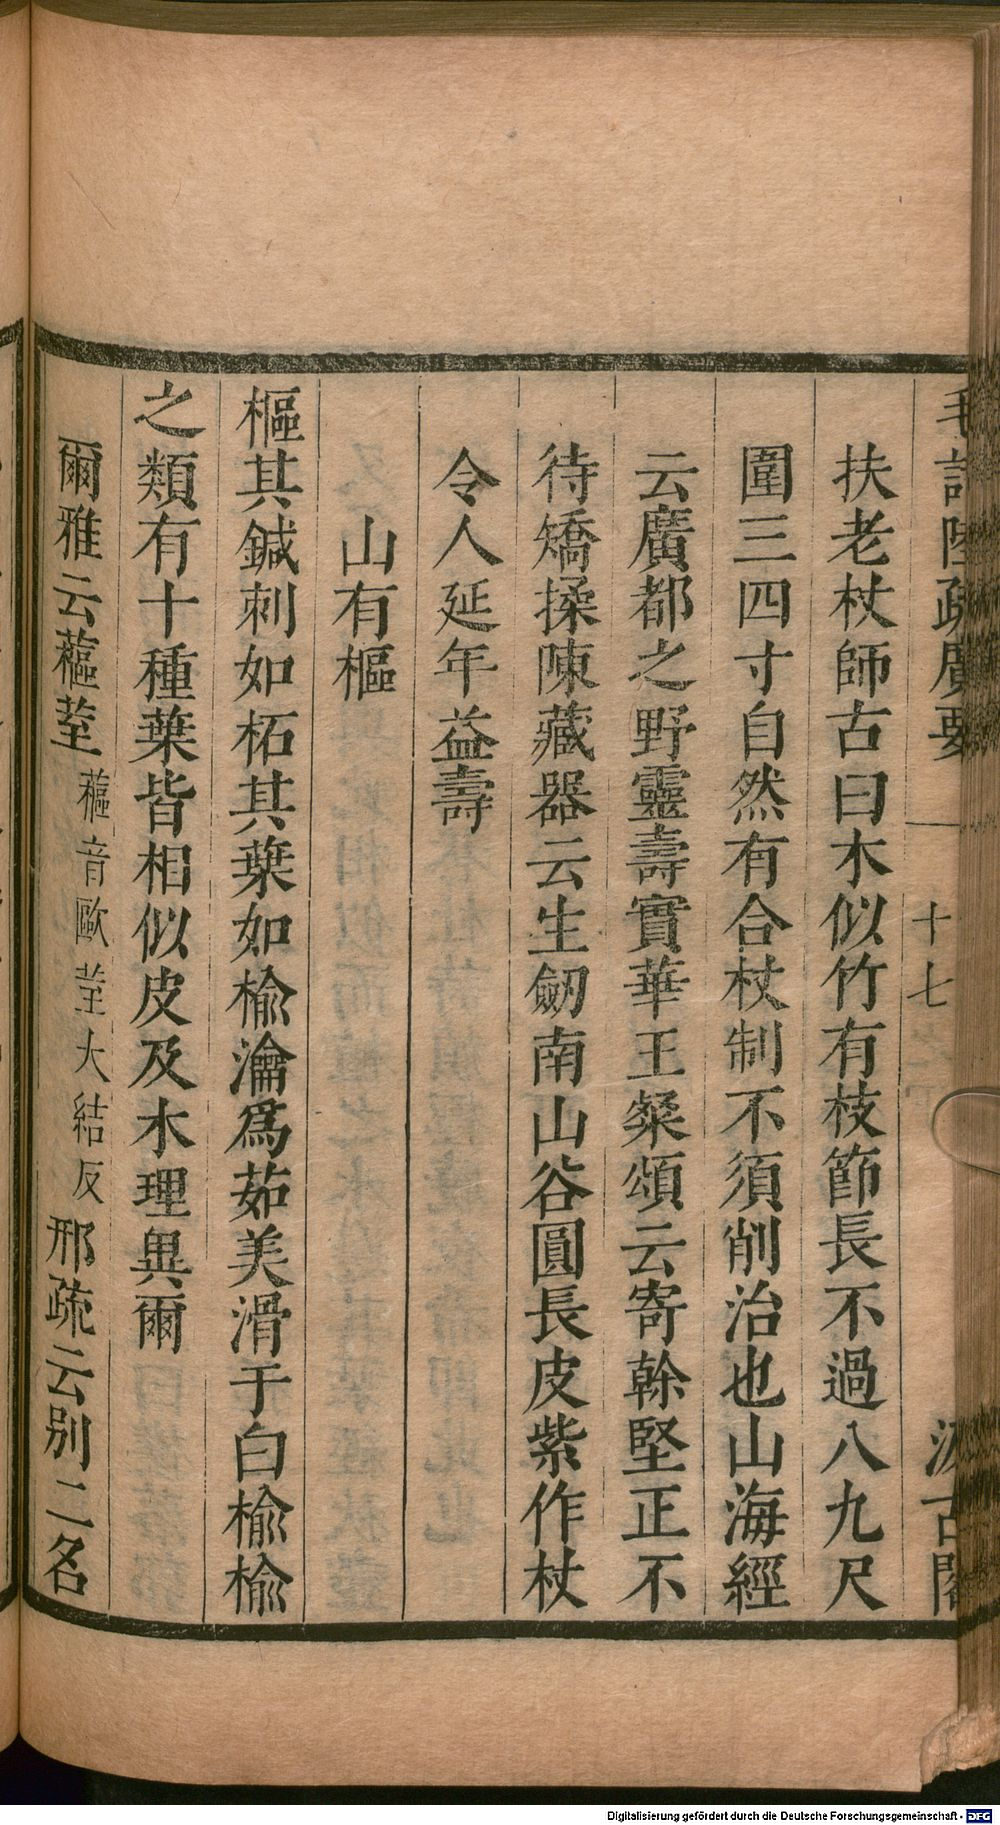 毛詩陸疏廣要 十七 汲古閣
扶老杖師古曰木似竹有枝節長不過八九尺
圍三四寸自然有合杖制不須削治也山海經
云廣都之野靈壽實華王粲頌云寄榦堅正不
待矯揉陳藏器云生劒南山谷圓長皮紫作杖
令人延年益壽
山有樞
樞其鍼刺如柘其葉如榆瀹爲茹美滑于白榆榆
之類有十種葉皆相似皮及木理異爾
爾雅云蓲荎蓲音歐荎大結反邢疏云别二名
Digitalisierung gefördert durch die Deutsche Forschungsgemeinschaft - DFG